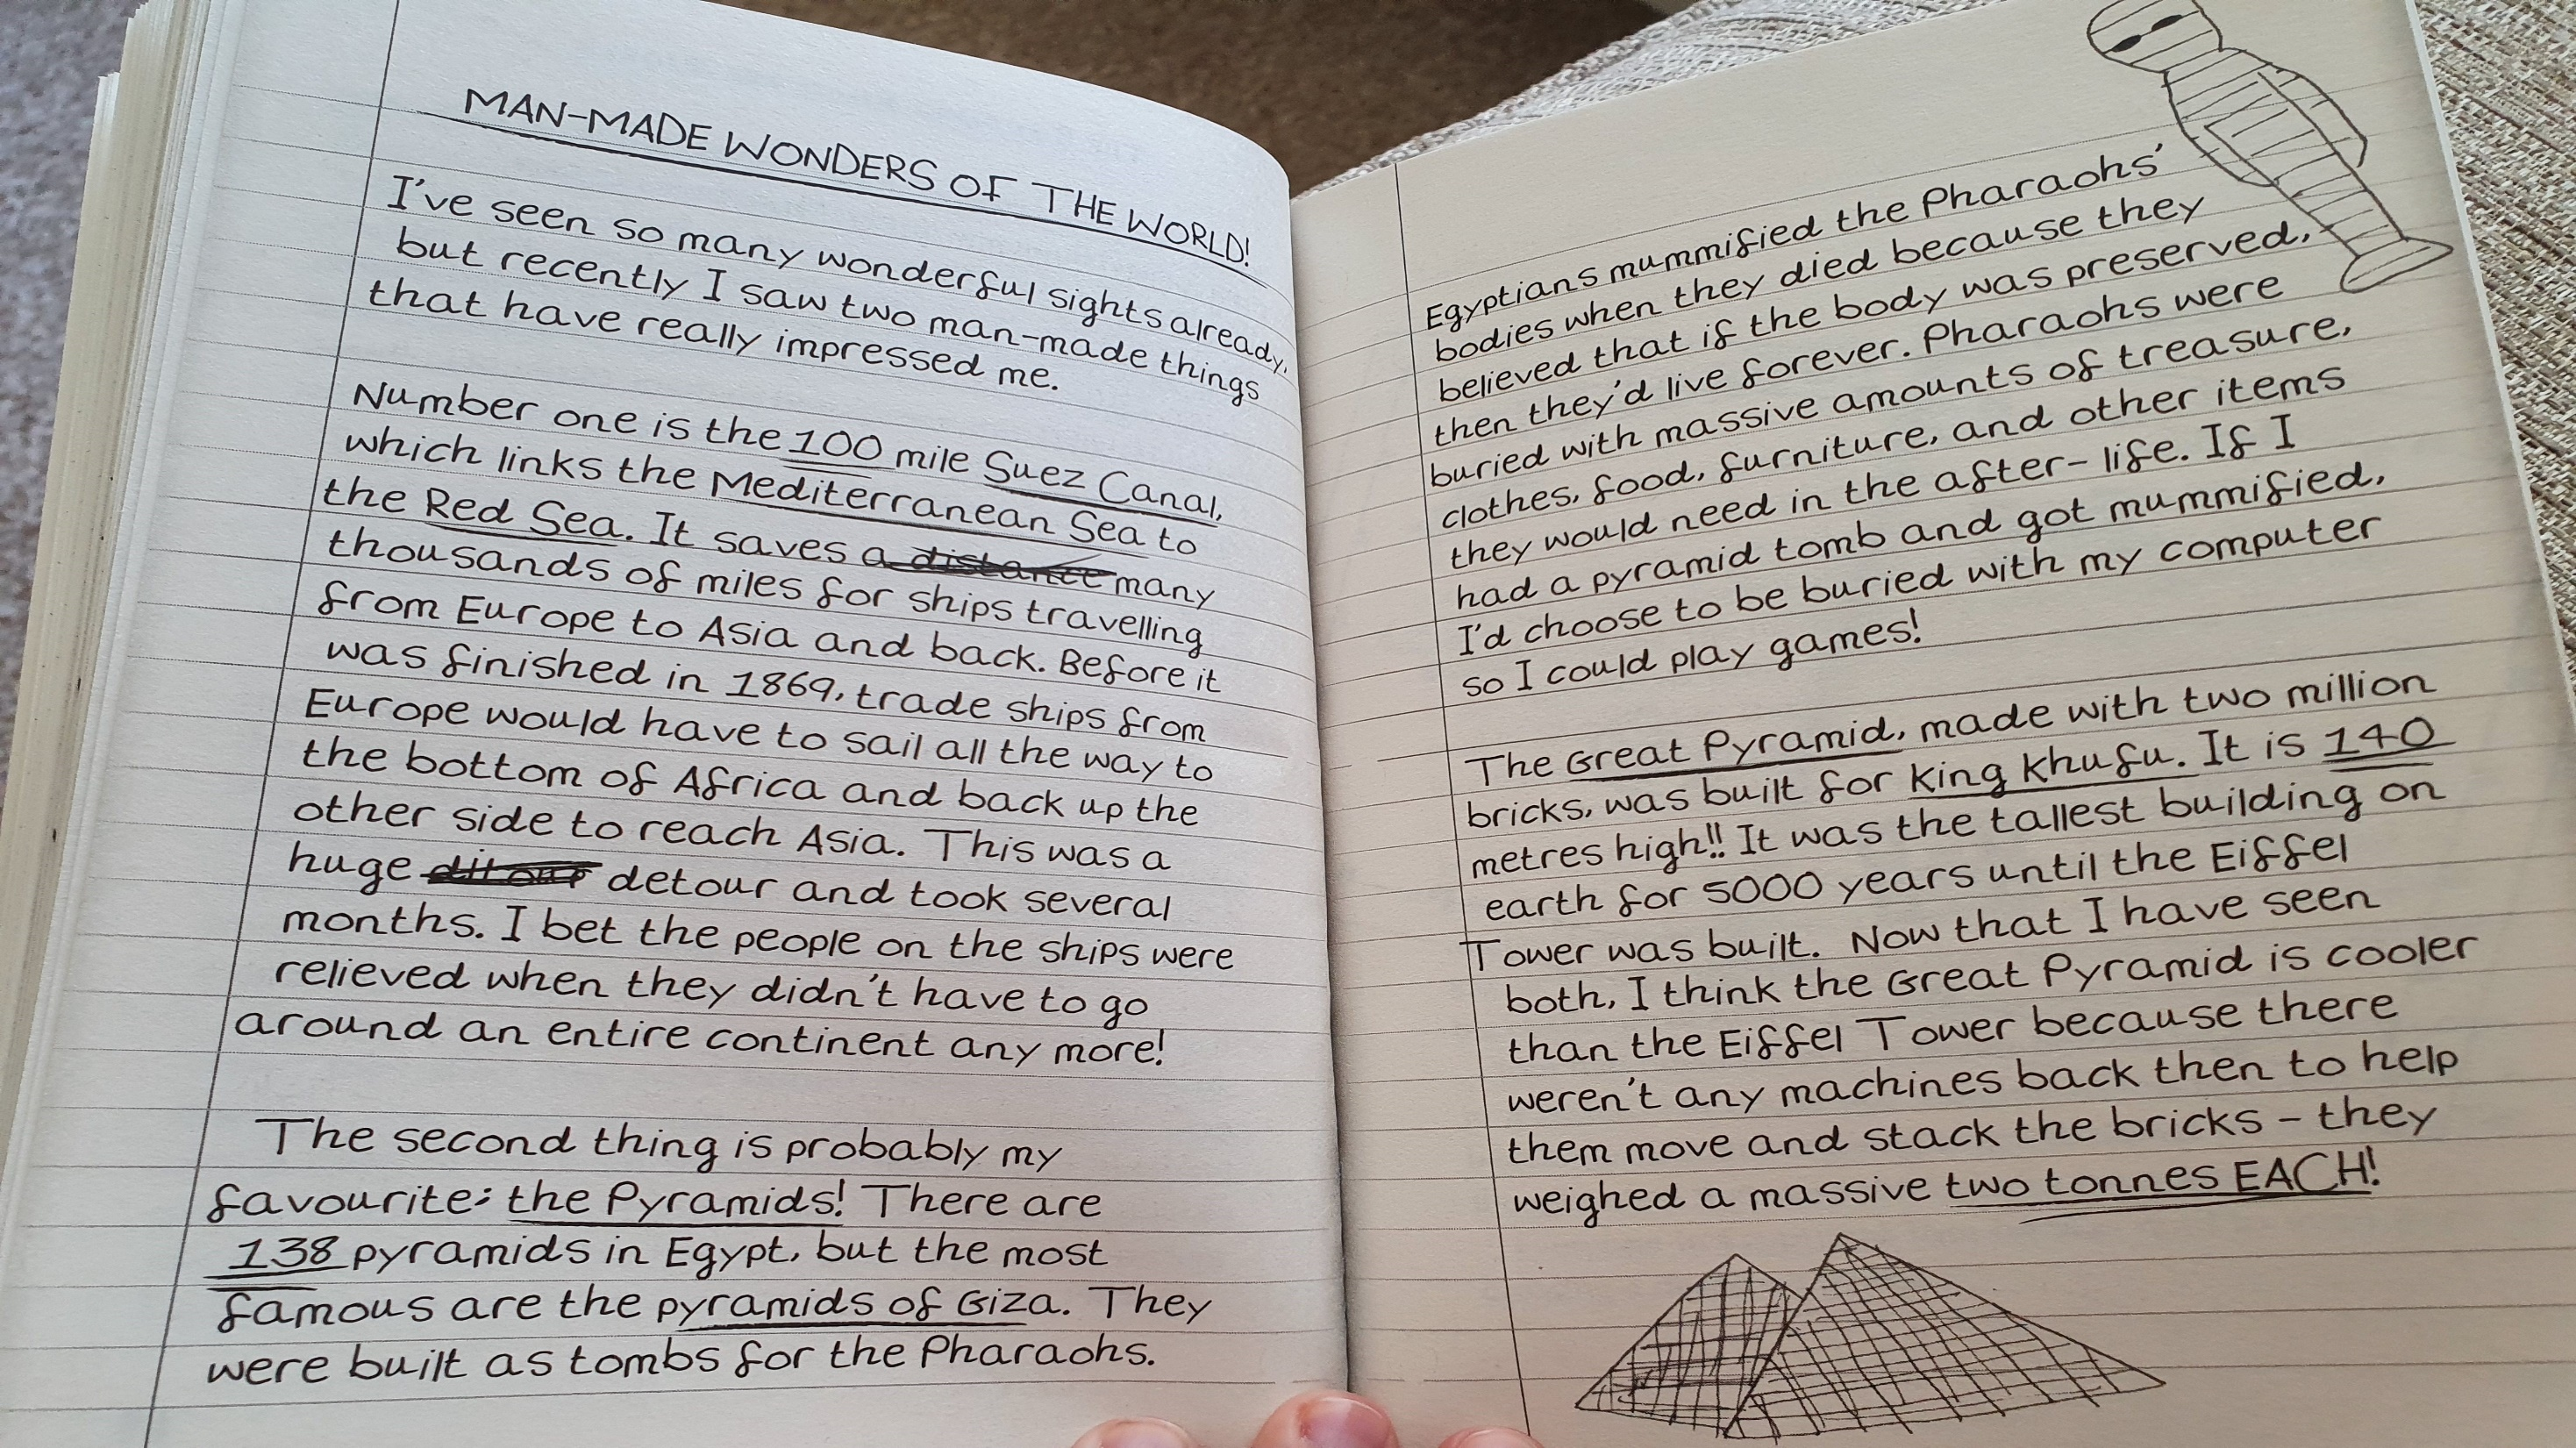 MAN-MADE WONDERS OF THE WORLD!
I've seen so many wonderful sights already,
but recently I saw two man-made things
that have really impressed me.
Number one is the 100 mile Suez Canal,
which links the Mediterranean Sea to
the Red Sea. It saves a distance many
thousands of miles for ships travelling
from Europe to Asia and back. Before it
was finished in 1869, trade ships from
Europe would have to sail all the way to
the bottom of Africa and back up the
other side to reach Asia. This was a
huge ditour detour and took several
months. I bet the people on the ships were
relieved when they didn't have to go
around an entire continent any more!
The second thing is probably my
favourite: the Pyramids! There are
138 pyramids in Egypt, but the most
famous are the pyramids of Giza. They
were built as tombs for the Pharaohs.
Egyptians mummified the Pharaohs'
bodies when they died because they
believed that if the body was preserved,
then they'd live forever. Pharaohs were
buried with massive amounts of treasure,
clothes, food, furniture, and other items
they would need in the after-life. If I
had a pyramid tomb and got mummified,
I'd choose to be buried with my computer
so I could play games!
The Great Pyramid, made with two million
bricks, was built for King Khufu. It is 140
metres high!! It was the tallest building on
earth for 5000 years until the Eiffel
Tower was built. Now that I have seen
both, I think the Great Pyramid is cooler
than the Eiffel Tower because there
weren't any machines back then to help
them move and stack the bricks - they
weighed a massive two tonnes EACH!